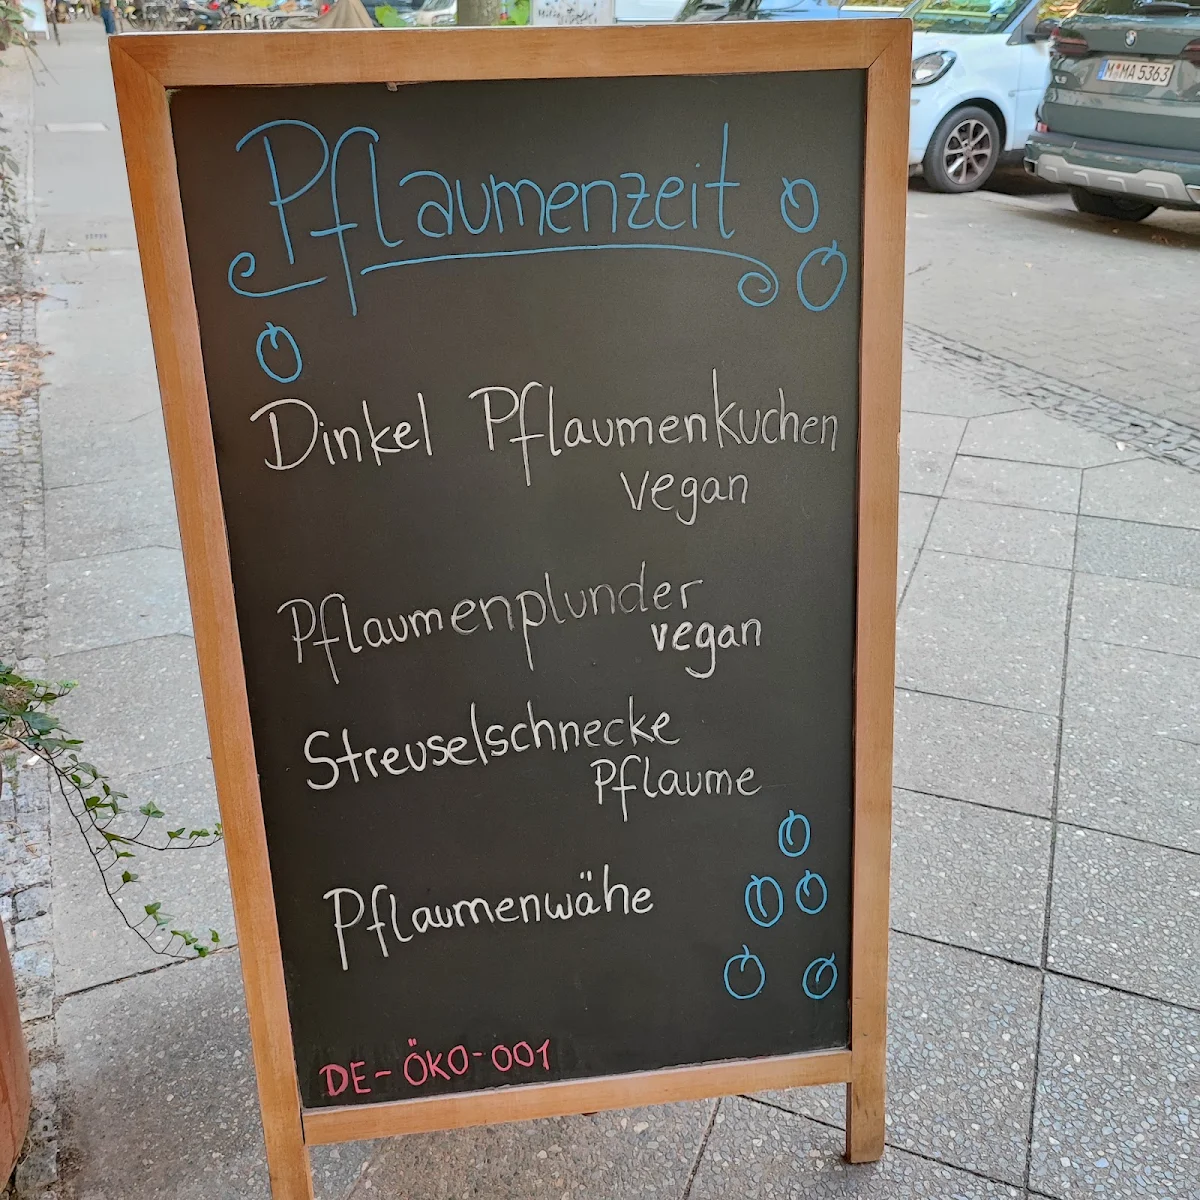 M MA 5363
Pflaumenzeit
Dinkel Pflaumenkuchen
vegan
Pflaumenplunder
vegan
Streuselschnecke
Pflaume
Pflaumenwähe
DE-ÖKO-001